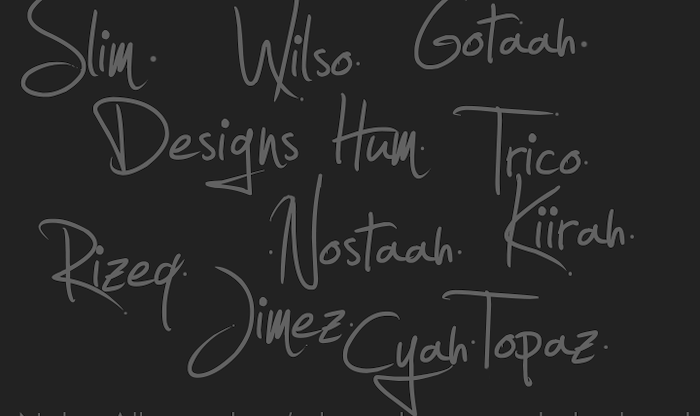 Slim. Wilso. Gotaah.
Designs Hum. Trico.
Rizeq. .Nostaah. Kiirah.
Jimez. Cyah. Topaz.